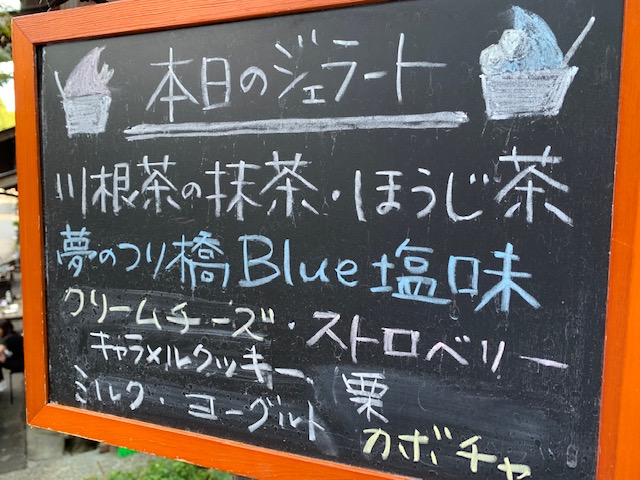 本日のジェラート
川根茶の抹茶・ほうじ茶
夢のつり橋Blue塩味
クリームチーズ・ストロベリー
キャラメルクッキー、栗
ミルク・ヨーグルト カボチャ